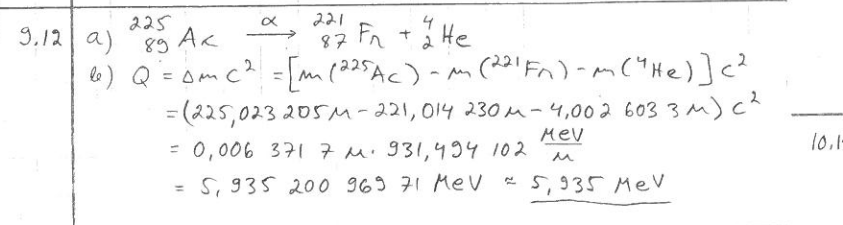 9.12 a) ²²⁵₈₉Ac —α→ ²²¹₈₇Fr + ⁴₂He
b) Q = Δmc² = [m(²²⁵Ac) - m(²²¹Fr) - m(⁴He)]c²
= (225,023 205u - 221,014 230u - 4,002 603 3u)c²
= 0,006 371 7 u · 931,494 102 MeV/u
= 5,935 200 969 71 MeV ≈ 5,935 MeV